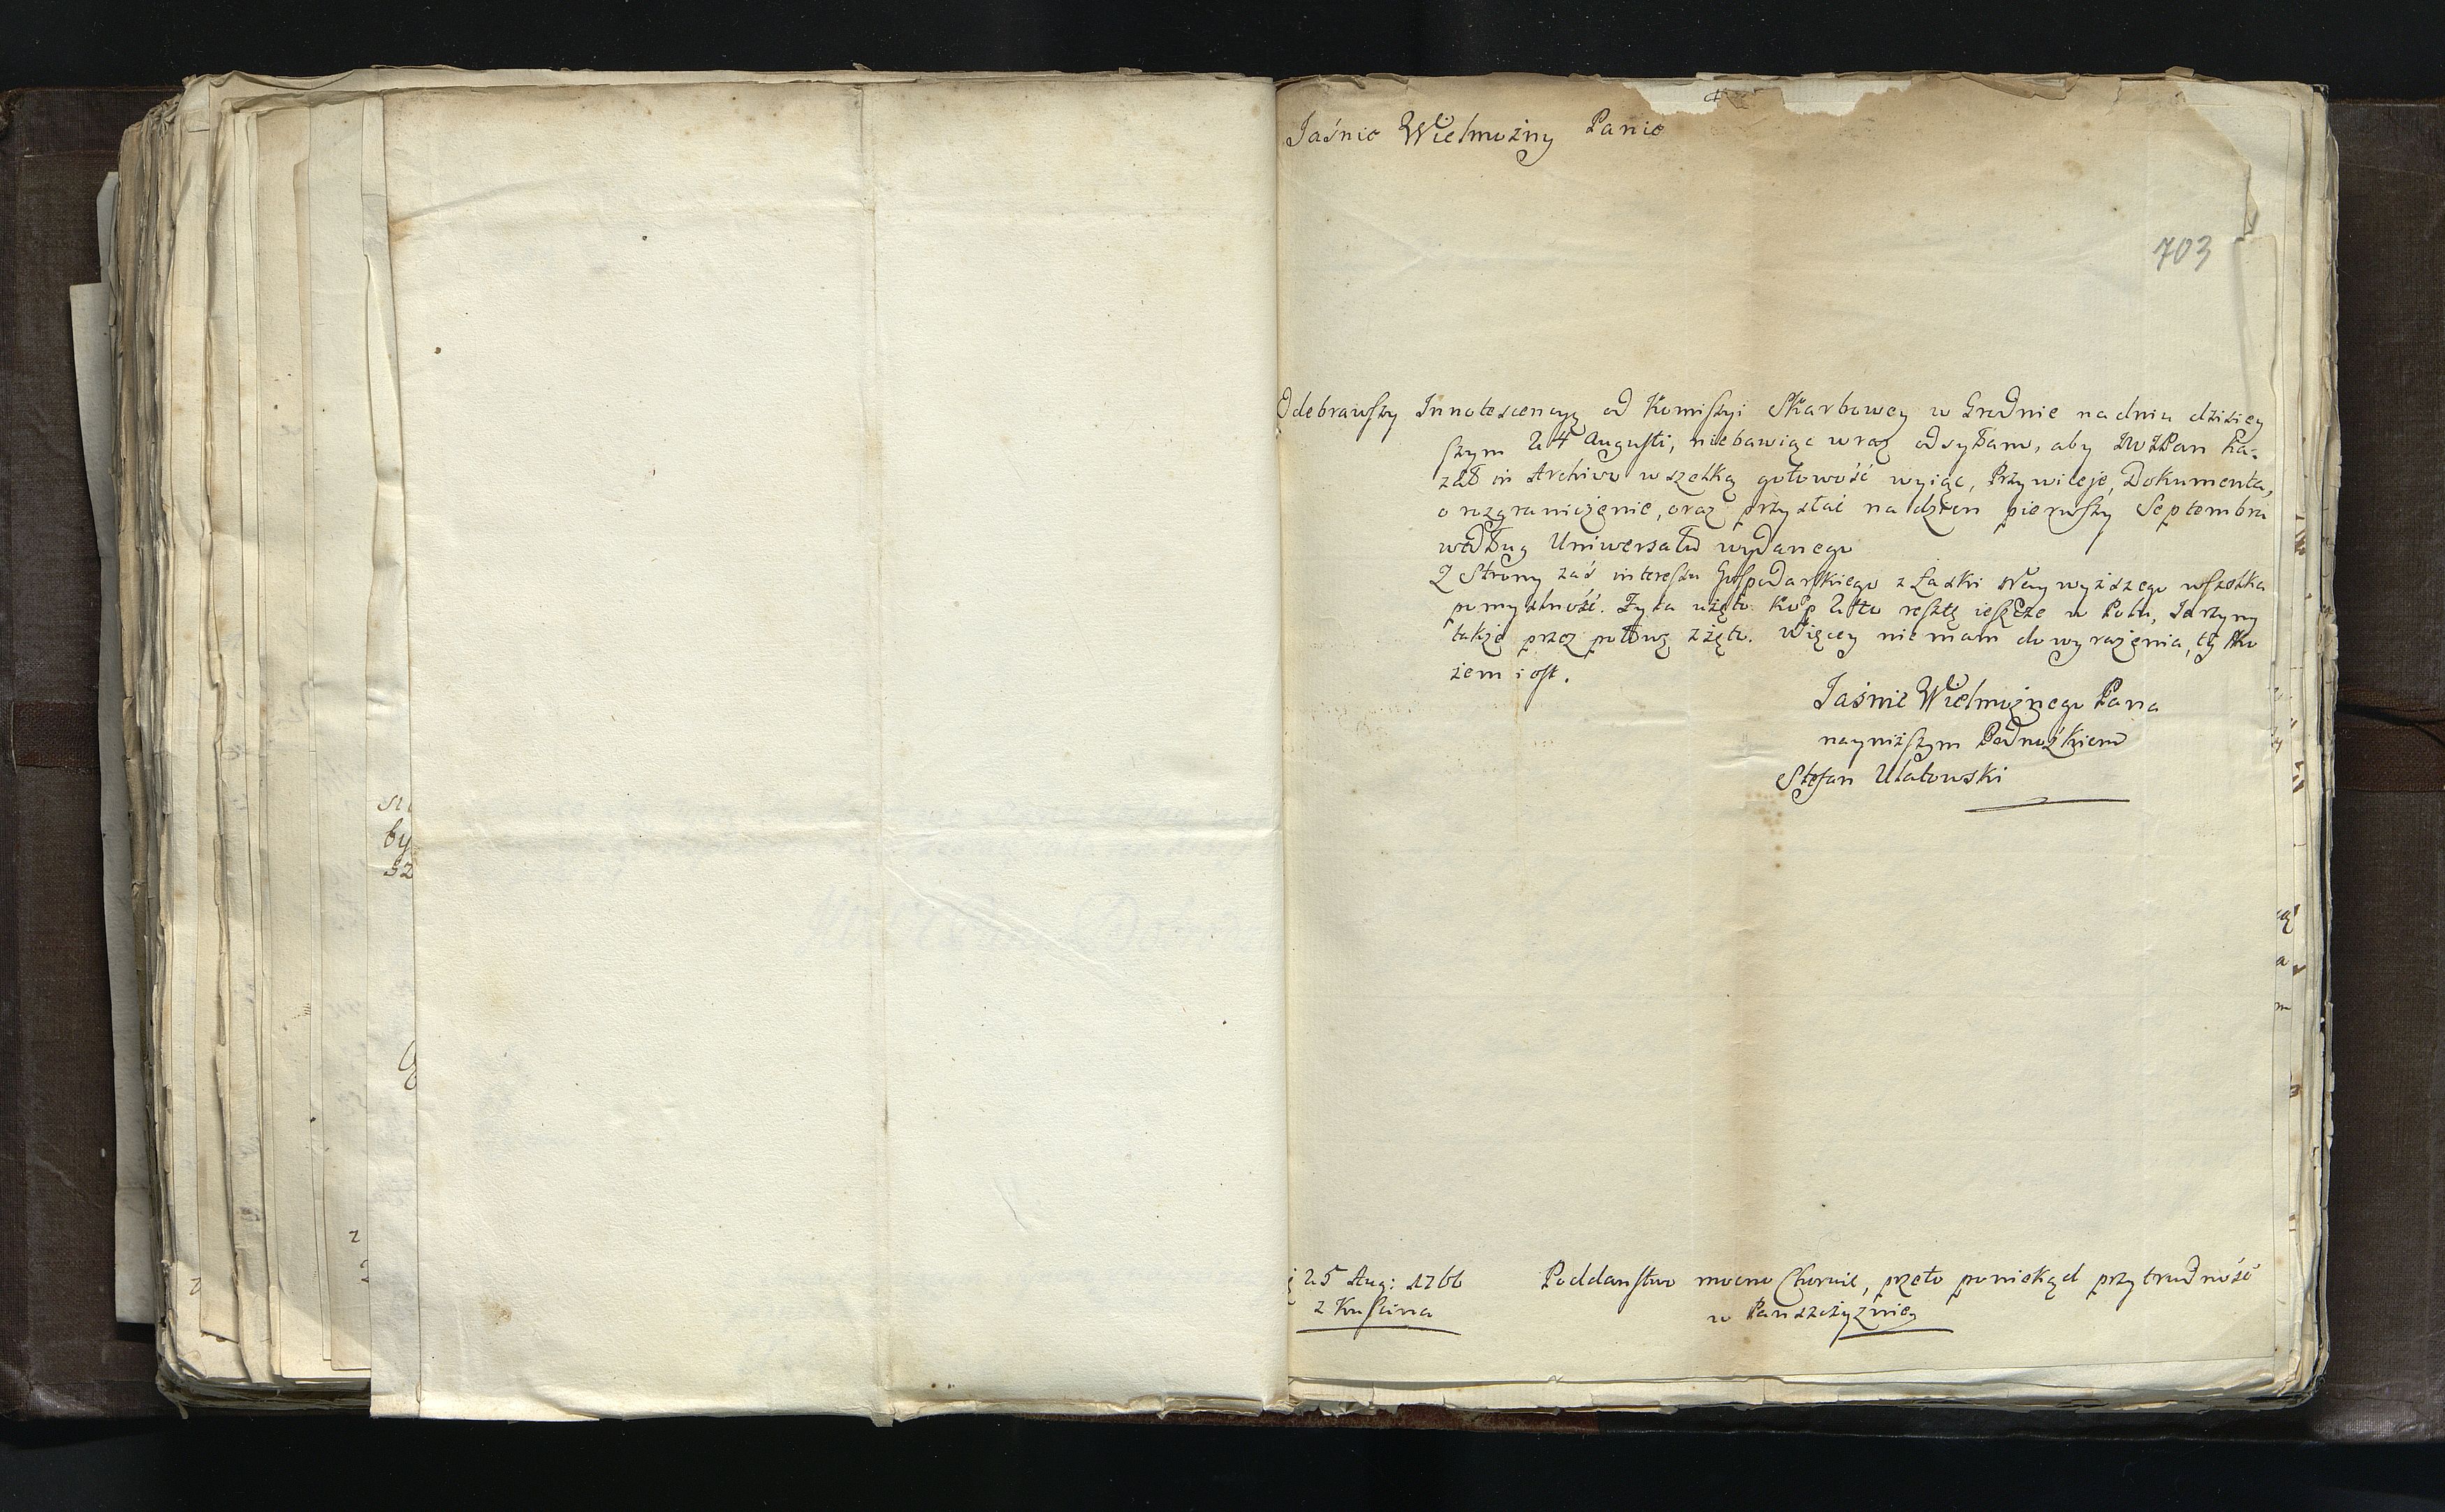 Jaśnie Wielmożny Panie
703
Odebrawszy Innotescencyą od Komiszyi Skarbowey w Grodnie na dniu dzisiey
szym 24 Augusti, niebawiąc wraz odsyłam, aby JWWPan ka-
zał in Archivo wszelką gotowość wyiąc, Przywileje, Dokumenta,
o rozgraniczenie, oraz przysłać na dzien pierwszy Septembra
według Uniwersału wydanego
Z Strony zaś interessu Gospodarskiego z Łaski Naywyższego wszelka
pomyslność. Żyta użęto Kop resztę ieszcze w Polu, Jarzyny
także przez połowę zżęto. Więcey nie mam do wyrażenia, tylko
żem iest.
Jaśnie Wielmożnego Pana
nayniższym Podnożkiem
Stefan Ulatowski
25 Aug: 1766
Poddanstwo mocno Choruie, przeto poniekąd przytrudność
w Panszczyzniey